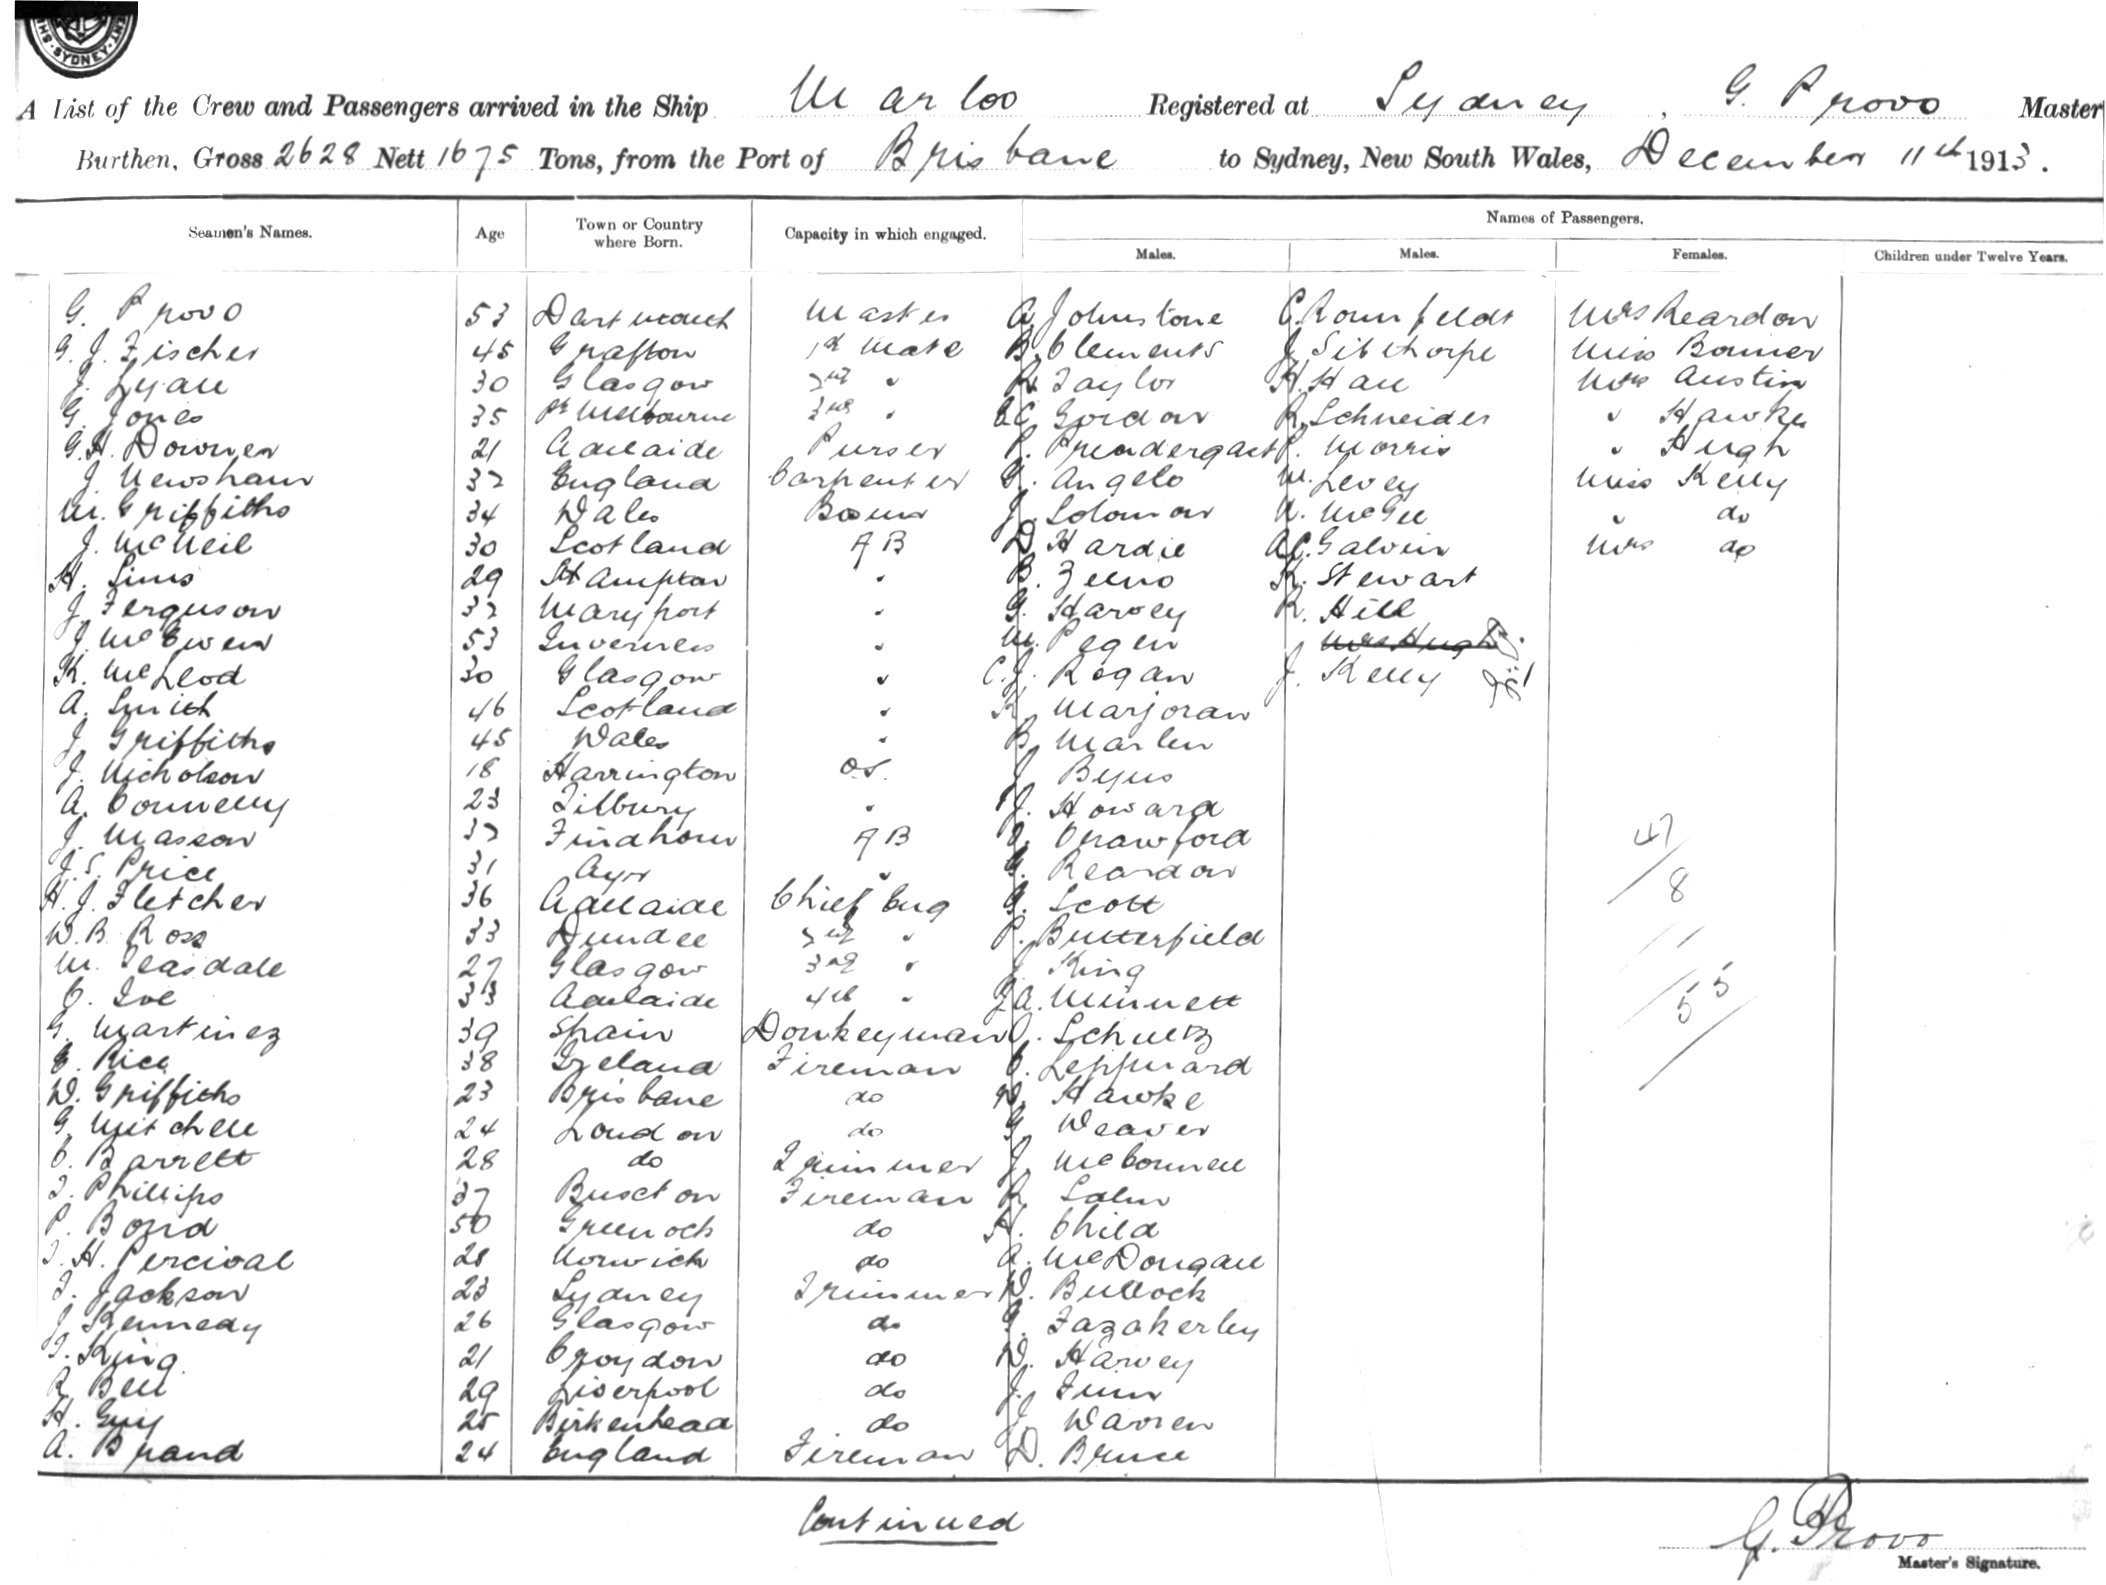 SYDNEY
A List of the Crew and Passengers arrived in the Ship Marloo Registered at Sydney, G. Provo Master
Burthen, Gross 2628 Nett 1675 Tons, from the Port of Brisbane to Sydney, New South Wales, December 11th 1913.
Seamen's Names. Age Town or Country where Born. Capacity in which engaged. Names of Passengers.
Males. Males. Females. Children under Twelve Years.
G. Provo 53 Dartmouth Master A. Johnstone C. Rounfeldt Mrs Reardon
G. J. Fischer 45 Grafton 1st Mate B. Clements J. Sibthorpe Miss Bonner
J. Lyall 30 Glasgow 2nd " R. Taylor H. Hall Mrs Austin
G. Jones 35 Pt Melbourne 3rd " E.C. Gordon R. Schneider " Hawke
G.H. Downer 21 Adelaide Purser P. Prendergast P. Morris " Hugh
J. Newsham 32 England Carpenter G. Angelo M. Levey Miss Kelly
M. Griffiths 34 Wales Bosun J. Solomon N. McGee " do
J. McNeil 30 Scotland AB D. Hardie A.C. Galvin Mrs do
H. Sims 29 Sthampton " B. Zeeno K. Stewart
J. Ferguson 32 Maryport " G. Harvey R. Hill
J. McEwen 53 Inverness " M. Pegen Mrs Hugh
K. McLeod 30 Glasgow " C.J. Regan J. Kelly
A. Smith 46 Scotland " Marjoran
J. Griffiths 45 Wales " B. Marlen
J. Nicholson 18 Harrington O.S. J. Byus
A. Connelly 23 Tilbury " J. Howard
J. Masson 32 Findhorn AB J. Crawford 47
J.S. Price 31 Ayr " G. Reardon 8
H. J. Fletcher 36 Adelaide Chief Eng G. Scott
W. B. Ross 33 Dundee 2nd " P. Butterfield
M. Teasdale 27 Glasgow 3rd " J. King
C. Ive 33 Adelaide 4th " J.A. Minnett 55
G. Martinez 39 Spain Donkeyman O. Schultz
E. Rice 38 Ireland Fireman C. Leppard
W. Griffiths 23 Brisbane do W. Hawke
G. Mitchell 24 London do G. Weaver
C. Barrett 28 do Trimmer J. McConnell
T. Phillips 37 Buscton Fireman R. Salm
P. Bond 50 Greenock do H. Child
T. H. Percival 28 Norwich do A. McDougall
T. Jackson 23 Sydney Trimmer W. Bullock
J. Kennedy 26 Glasgow do G. Fazakerley
T. King 21 Croydon do W. Harvey
R. Bell 29 Liverpool do J. Finn
H. Guy 25 Birkenhead do J. Warren
A. Brand 24 England Fireman D. Bruce
Continued
G. Provo
Master's Signature.